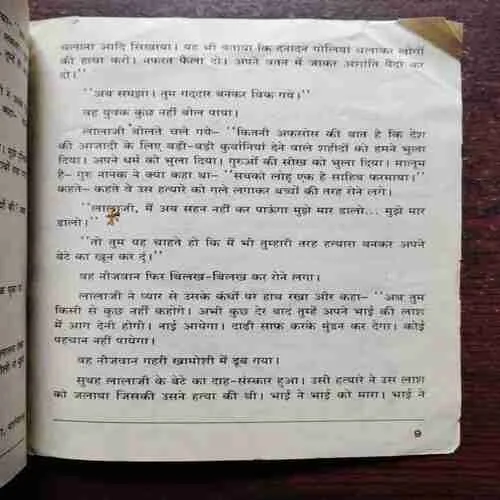 चलाना आदि सिखाया। यह भी बताया कि दनादन गोलियां चलाकर लोगों
की हत्या करो। नफरत फैला दो। अपने वतन में जाकर अशांति पैदा कर
दो।''
''अब समझा। तुम गद्दार बनकर बिक गये।''
वह युवक कुछ नहीं बोल पाया।
लालाजी बोलते चले गये– ''कितनी अफसोस की बात है कि देश
की आजादी के लिए बड़ी-बड़ी कुर्बानियां देने वाले शहीदों को हमने भुला
दिया। अपने धर्म को भुला दिया। गुरुओं की सीख को भुला दिया। मालूम
है– गुरु नानक ने क्या कहा था– ''सबको लोहू एक है साहिब फरमाया।''
कहते- कहते वे उस हत्यारे को गले लगाकर बच्चों की तरह रोने लगे।
''लालाजी, मैं अब सहन नहीं कर पाऊंगा मुझे मार डालो... मुझे मार
डालो।''
''तो तुम यह चाहते हो कि मैं भी तुम्हारी तरह हत्यारा बनकर अपने
बेटे का खून कर दूं।''
वह नौजवान फिर बिलख-बिलख कर रोने लगा।
लालाजी ने प्यार से उसके कंधों पर हाथ रखा और कहा– ''अब तुम
किसी से कुछ नहीं कहोगे। अभी कुछ देर बाद तुम्हें अपने भाई की लाश
में आग देनी होगी। नाई आयेगा। दाढ़ी साफ करके मुंडन कर देगा। कोई
पहचान नहीं पायेगा।
वह नौजवान गहरी खामोशी में डूब गया।
सुबह लालाजी के बेटे का दाह-संस्कार हुआ। उसी हत्यारे ने उस लाश
को जलाया जिसकी उसने हत्या की थी। भाई ने भाई को मारा। भाई ने
9